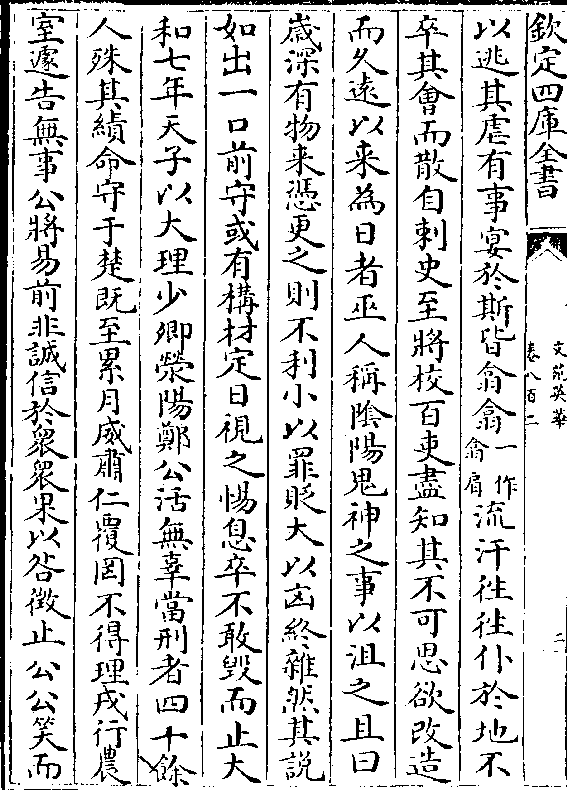 欽定四庫全書
文苑英華
卷八百二
二
以逃其虐有事宴於斯皆翕翕一作翕肩流汗徃徃仆於地不
卒其會而散自刺史至將校百吏盡知其不可思欲改造
而久逺以来為日者巫人稱隂陽鬼神之事以沮之且曰
歳深有物来憑更之則不利小以罪貶大以凶終雜然其説
如出一口前守或有構材定日視之惕息卒不敢毁而止大
和七年天子以大理少卿滎陽鄭公活無辜當刑者四十餘
人殊其績命守于楚既至累月威肅仁覆罔不得理戎行農
室遽告無事公將易前非誠信於衆衆果以咎徵止公公笑而